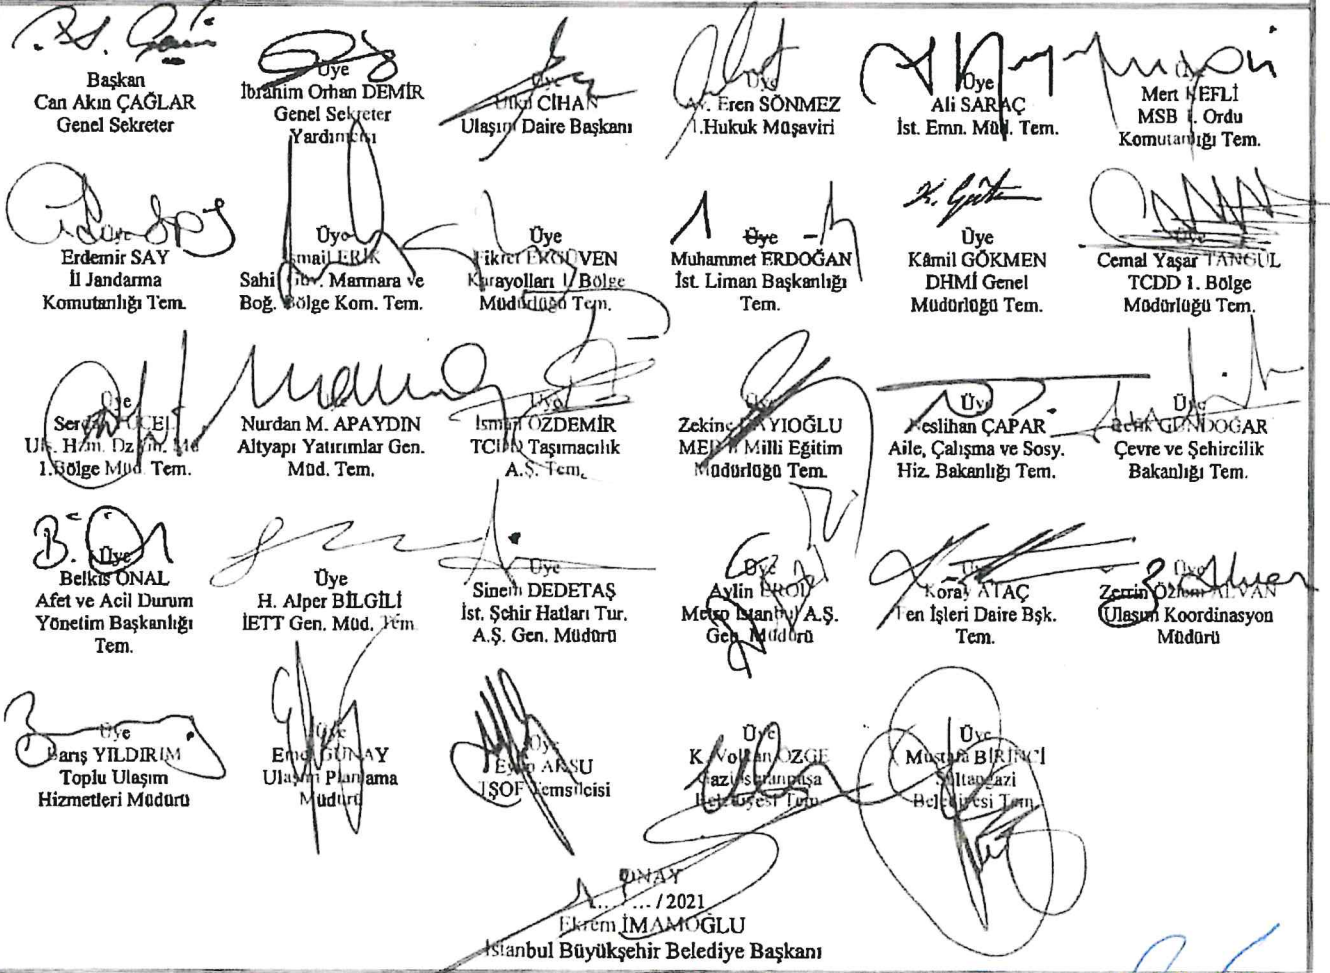 Başkan
Can Akın ÇAĞLAR
Genel Sekreter
Üye
İbrahim Orhan DEMİR
Genel Sekreter
Yardımcısı
Üye
CİHAN
Ulaşım Daire Başkanı
Üye
Av. Eren SÖNMEZ
1.Hukuk Müşaviri
Üye
Ali SARAÇ
İst. Emn. Müd. Tem.
Üye
Mert KEFLİ
MSB 1. Ordu
Komutanlığı Tem.
Üye
Erdemir SAY
İl Jandarma
Komutanlığı Tem.
Üye
İsmail ERİK
Sahil Güv. Marmara ve
Boğ. Bölge Kom. Tem.
Üye
Fikret ERGÜVEN
Karayolları 1. Bölge
Müdürlüğü Tem.
Üye
Muhammet ERDOĞAN
İst. Liman Başkanlığı
Tem.
Üye
Kâmil GÖKMEN
DHMİ Genel
Müdürlüğü Tem.
Üye
Cemal Yaşar TANGÜL
TCDD 1. Bölge
Müdürlüğü Tem.
Üye
1.Bölge Müd. Tem.
Nurdan M. APAYDIN
Altyapı Yatırımlar Gen.
Müd. Tem.
Üye
İsmail ÖZDEMİR
TCDD Taşımacılık
A.Ş. Tem.
Üye
Milli Eğitim
Müdürlüğü Tem.
Üye
Neslihan ÇAPAR
Aile, Çalışma ve Sosy.
Hiz. Bakanlığı Tem.
Üye
GÜNDOĞAR
Çevre ve Şehircilik
Bakanlığı Tem.
Üye
Belkıs ÖNAL
Afet ve Acil Durum
Yönetim Başkanlığı
Tem.
Üye
H. Alper BİLGİLİ
İETT Gen. Müd. Tem.
Üye
Sinem DEDETAŞ
İst. Şehir Hatları Tur.
A.Ş. Gen. Müdürü
Üye
Aylin EROL
Metro İstanbul A.Ş.
Gen. Müdürü
Üye
Koray ATAÇ
Fen İşleri Daire Bşk.
Tem.
Üye
Zerrin Özlem ALVAN
Ulaşım Koordinasyon
Müdürü
Üye
Barış YILDIRIM
Toplu Ulaşım
Hizmetleri Müdürü
Üye
GÜNAY
Ulaşım Planlama
Müdürü
Üye
Eyüp AKSU
TŞOF Temsilcisi
Üye
K. Volkan ÖZGE
Gaziosmanpaşa
Belediyesi Tem.
Üye
Mustafa BİRİNCİ
Sultangazi
Belediyesi Tem.
ONAY
... / 2021
Ekrem İMAMOĞLU
İstanbul Büyükşehir Belediye Başkanı